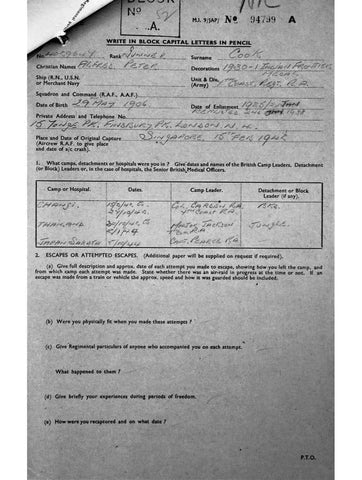 BLOCK
Nº
A.
M.I. 9/JAP/ Nº 94799 A
WRITE IN BLOCK CAPITAL LETTERS IN PENCIL
Rank GUNNER Surname COOK
Christian Names ALFRED PETER Decorations 1930-1 INDIAN FRONTIER
Ship (R.N., U.S.N. or Merchant Navy) Unit & Div. (Army) COAST REGT. R.A.
Squadron and Command (R.A.F., A.A.F.)
Date of Birth 29 MAY 1906 Date of Enlistment
Private Address and Telephone No
15 PK. FINSBURY PK. LONDON N.
Place and Date of Original Capture SINGAPORE 15 FEB 1942
(Aircrew R.A.F. to give place and date of a/c crash).
1. What camps, detachments or hospitals were you in ? Give dates and names of the British Camp Leaders. Detachment (or Block) Leaders or, in the case of hospitals, the Senior British, Medical Officers.
Camp or Hospital. Dates. Camp Leader. Detachment or Block Leader (if any).
CHANGI. R.A.
THAILAND MAJOR JACKSON JUNGLE.
JAPAN CAPT. PEARCE R.A.
2. ESCAPES OR ATTEMPTED ESCAPES. (Additional paper will be supplied on request if required).
(a) Give full description and approx. date of each attempt you made to escape, showing how you left the camp, and from which camp each attempt was made. State whether there was an air-raid in progress at the time or not. If an escape was made from a train or vehicle the approx. speed and how it was guarded should be included.
(b) Were you physically fit when you made these attempts ?
(c) Give Regimental particulars of anyone who accompanied you on each attempt.
What happened to them ?
(d) Give briefly your experiences during periods of freedom.
(e) How were you recaptured and on what date ?
P.T.O.